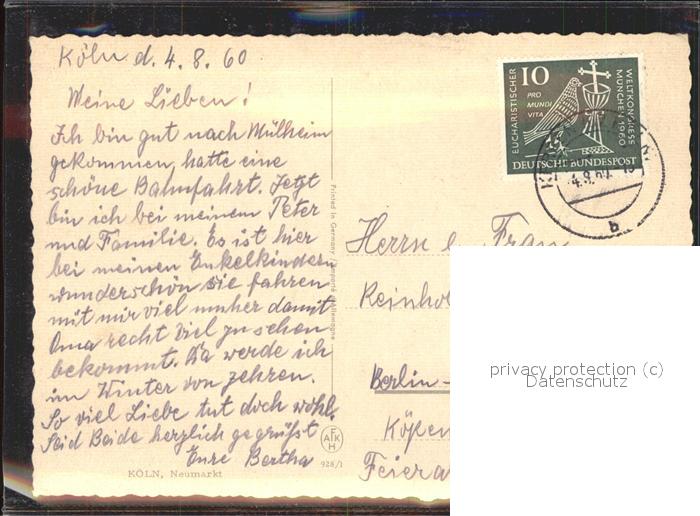 Köln d. 4.8.60
Meine Lieben!
Ich bin gut nach Mülheim
gekommen, hatte eine
schöne Bahnfahrt. Jetzt
bin ich bei meinem Peter
und Familie. Es ist hier
bei meinen Enkelkindern
wunderschön sie fahren
mit mir viel umher damit
Oma recht viel zu sehen
bekommt. Da werde ich
im Winter von zehren.
So viel Liebe tut doch wohl.
Seid Beide herzlich gegrüßt
Eure Bertha
KÖLN, Neumarkt
928/1
Printed in Germany
EUCHARISTISCHER
WELTKONGRESS
MÜNCHEN 1960
10
PRO
MUNDI
VITA
DEUTSCHE BUNDESPOST
4.8.60
b
Herrn u. Frau
Reinhol
Berlin-
Köpen
Feiera
privacy protection (c)
Datenschutz